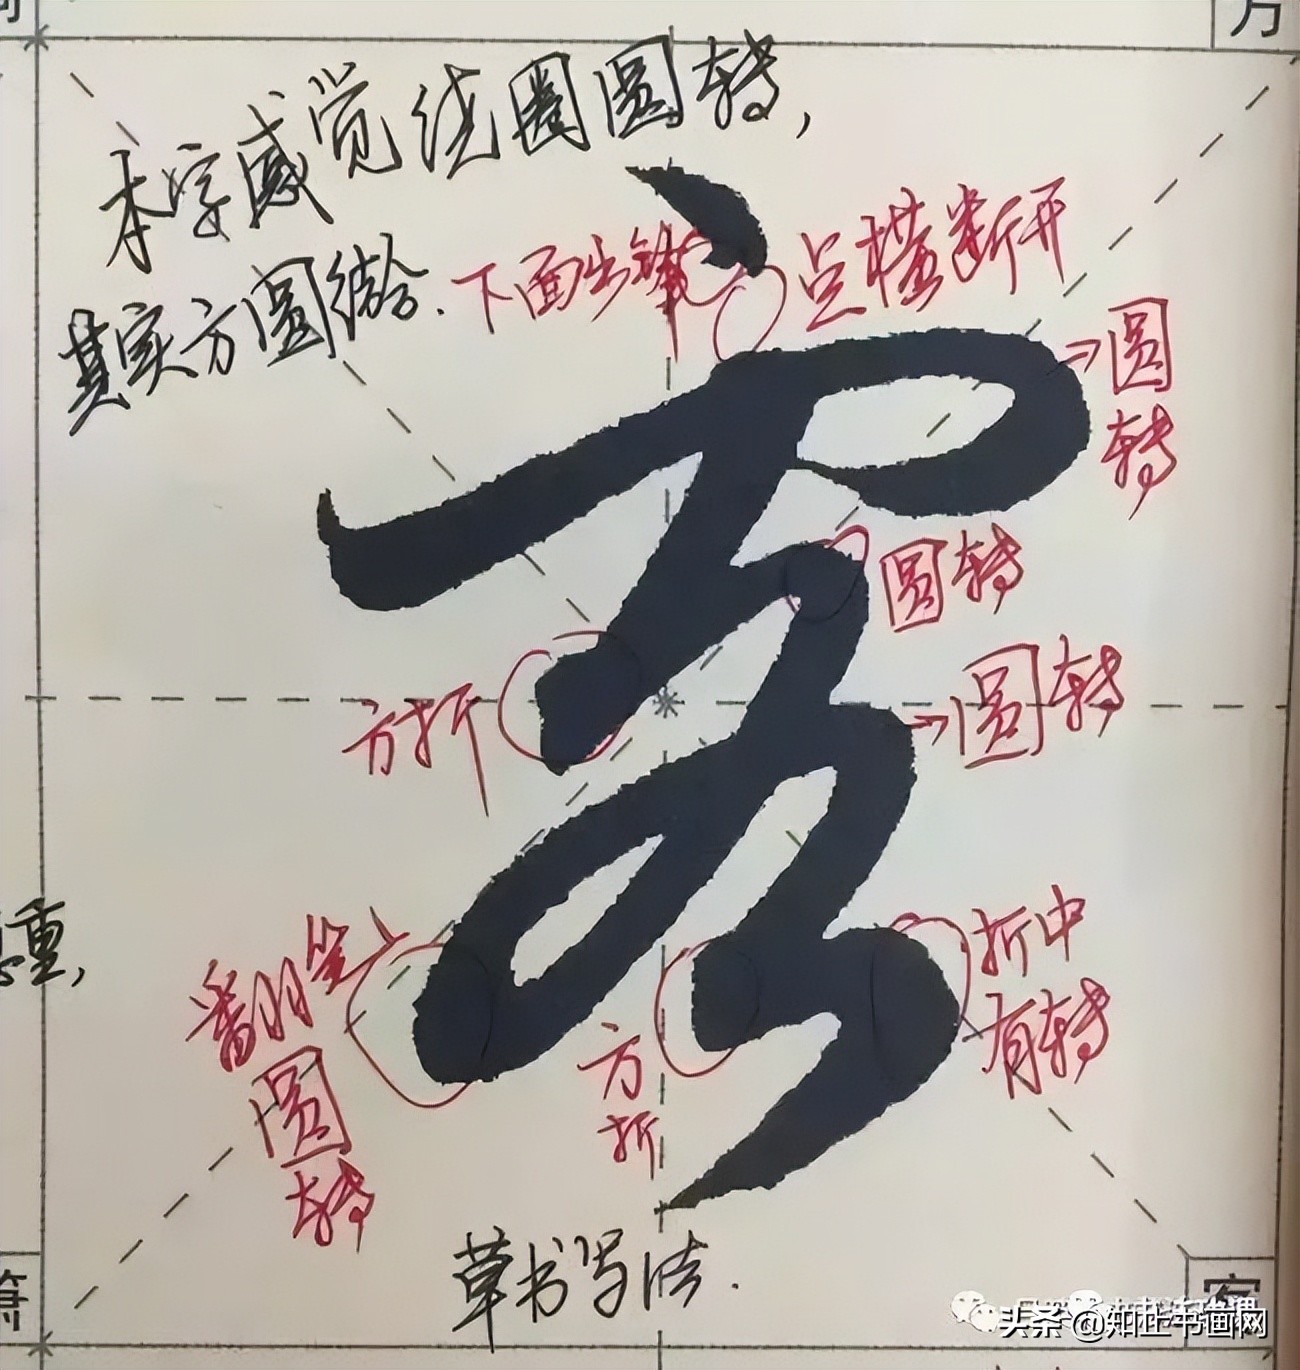 方
本字感觉绕圈圆转,
其实方圆结合.
下面出锋
点横断开
→圆
转
圆转
→圆转
方折
重,
翻笔
圆
转
方
折
折中
有转
草书写法.
密
头条 @知止书画网